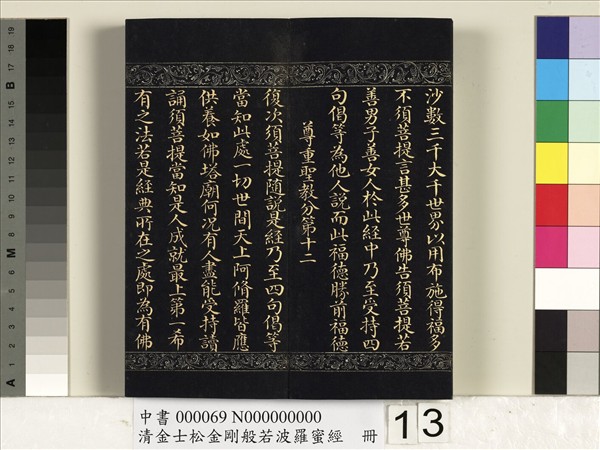 沙數三千大千世界以用布施得福多
不須菩提言甚多世尊佛告須菩提若
善男子善女人於此經中乃至受持四
句偈等為他人說而此福德勝前福德
尊重聖教分第十二
復次須菩提隨說是經乃至四句偈等
當知此處一切世間天上阿脩羅皆應
供養如佛塔廟何況有人盡能受持讀
誦須菩提當知是人成就最上第一希
有之法若是經典所在之處即為有佛
中書 000069 N000000000
清金士松金剛般若波羅蜜經 冊
13
A 1 2 3 4 5 6 M 8 9 10 11 12 13 14 15 B 17 18 19